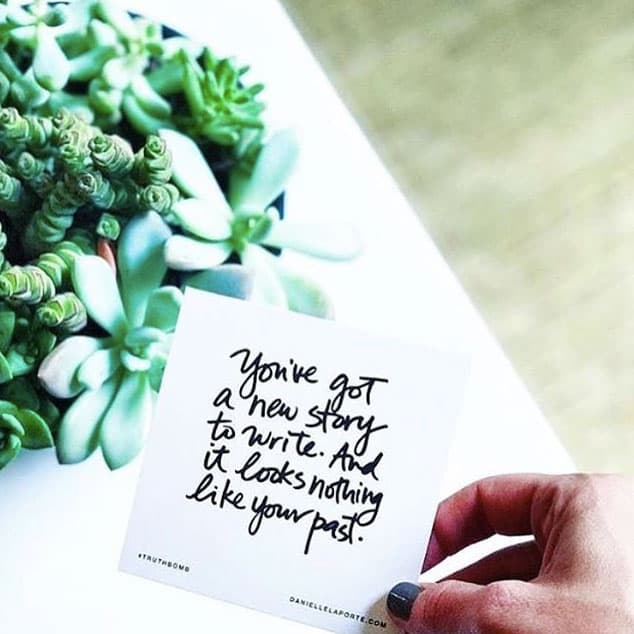 You've got
a new story
to write. And
it looks nothing
like your past.
#TRUTHBOMB
DANIELLELAPORTE.COM